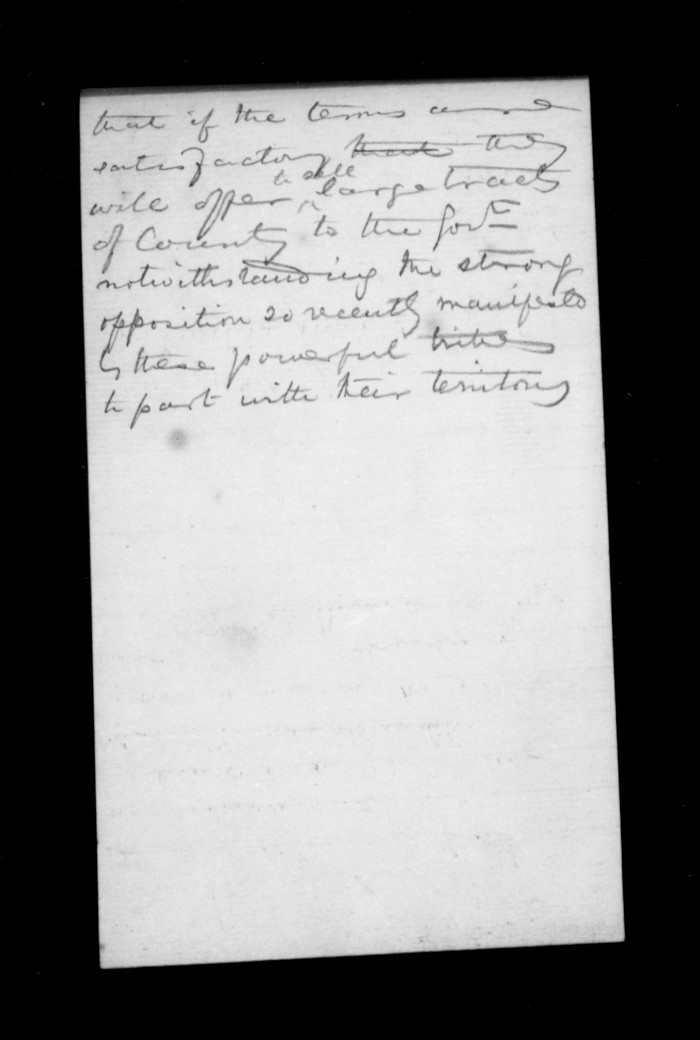 that if the terms are
satisfactory that they
will offer to sell large tracts
of County to the Govt
notwithstanding the strong
opposition so recently manifested
by these powerful tribes
to part with their territory